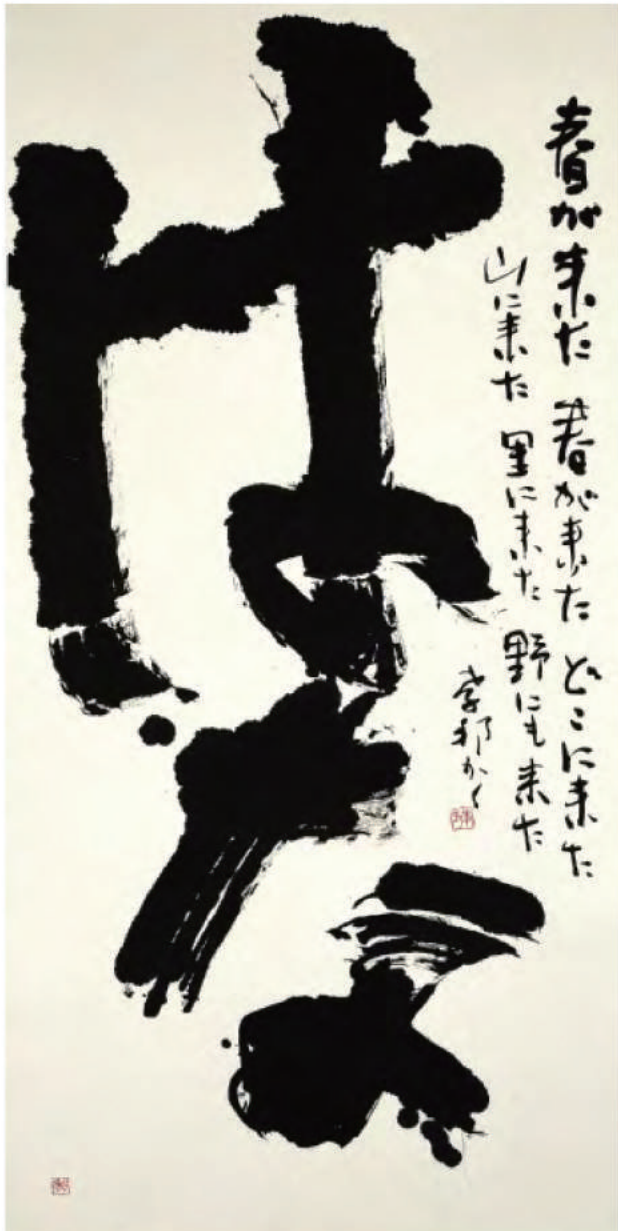 春が来た 春が来た どこに来た
山に来た 里に来た 野にも来た
かく
はな